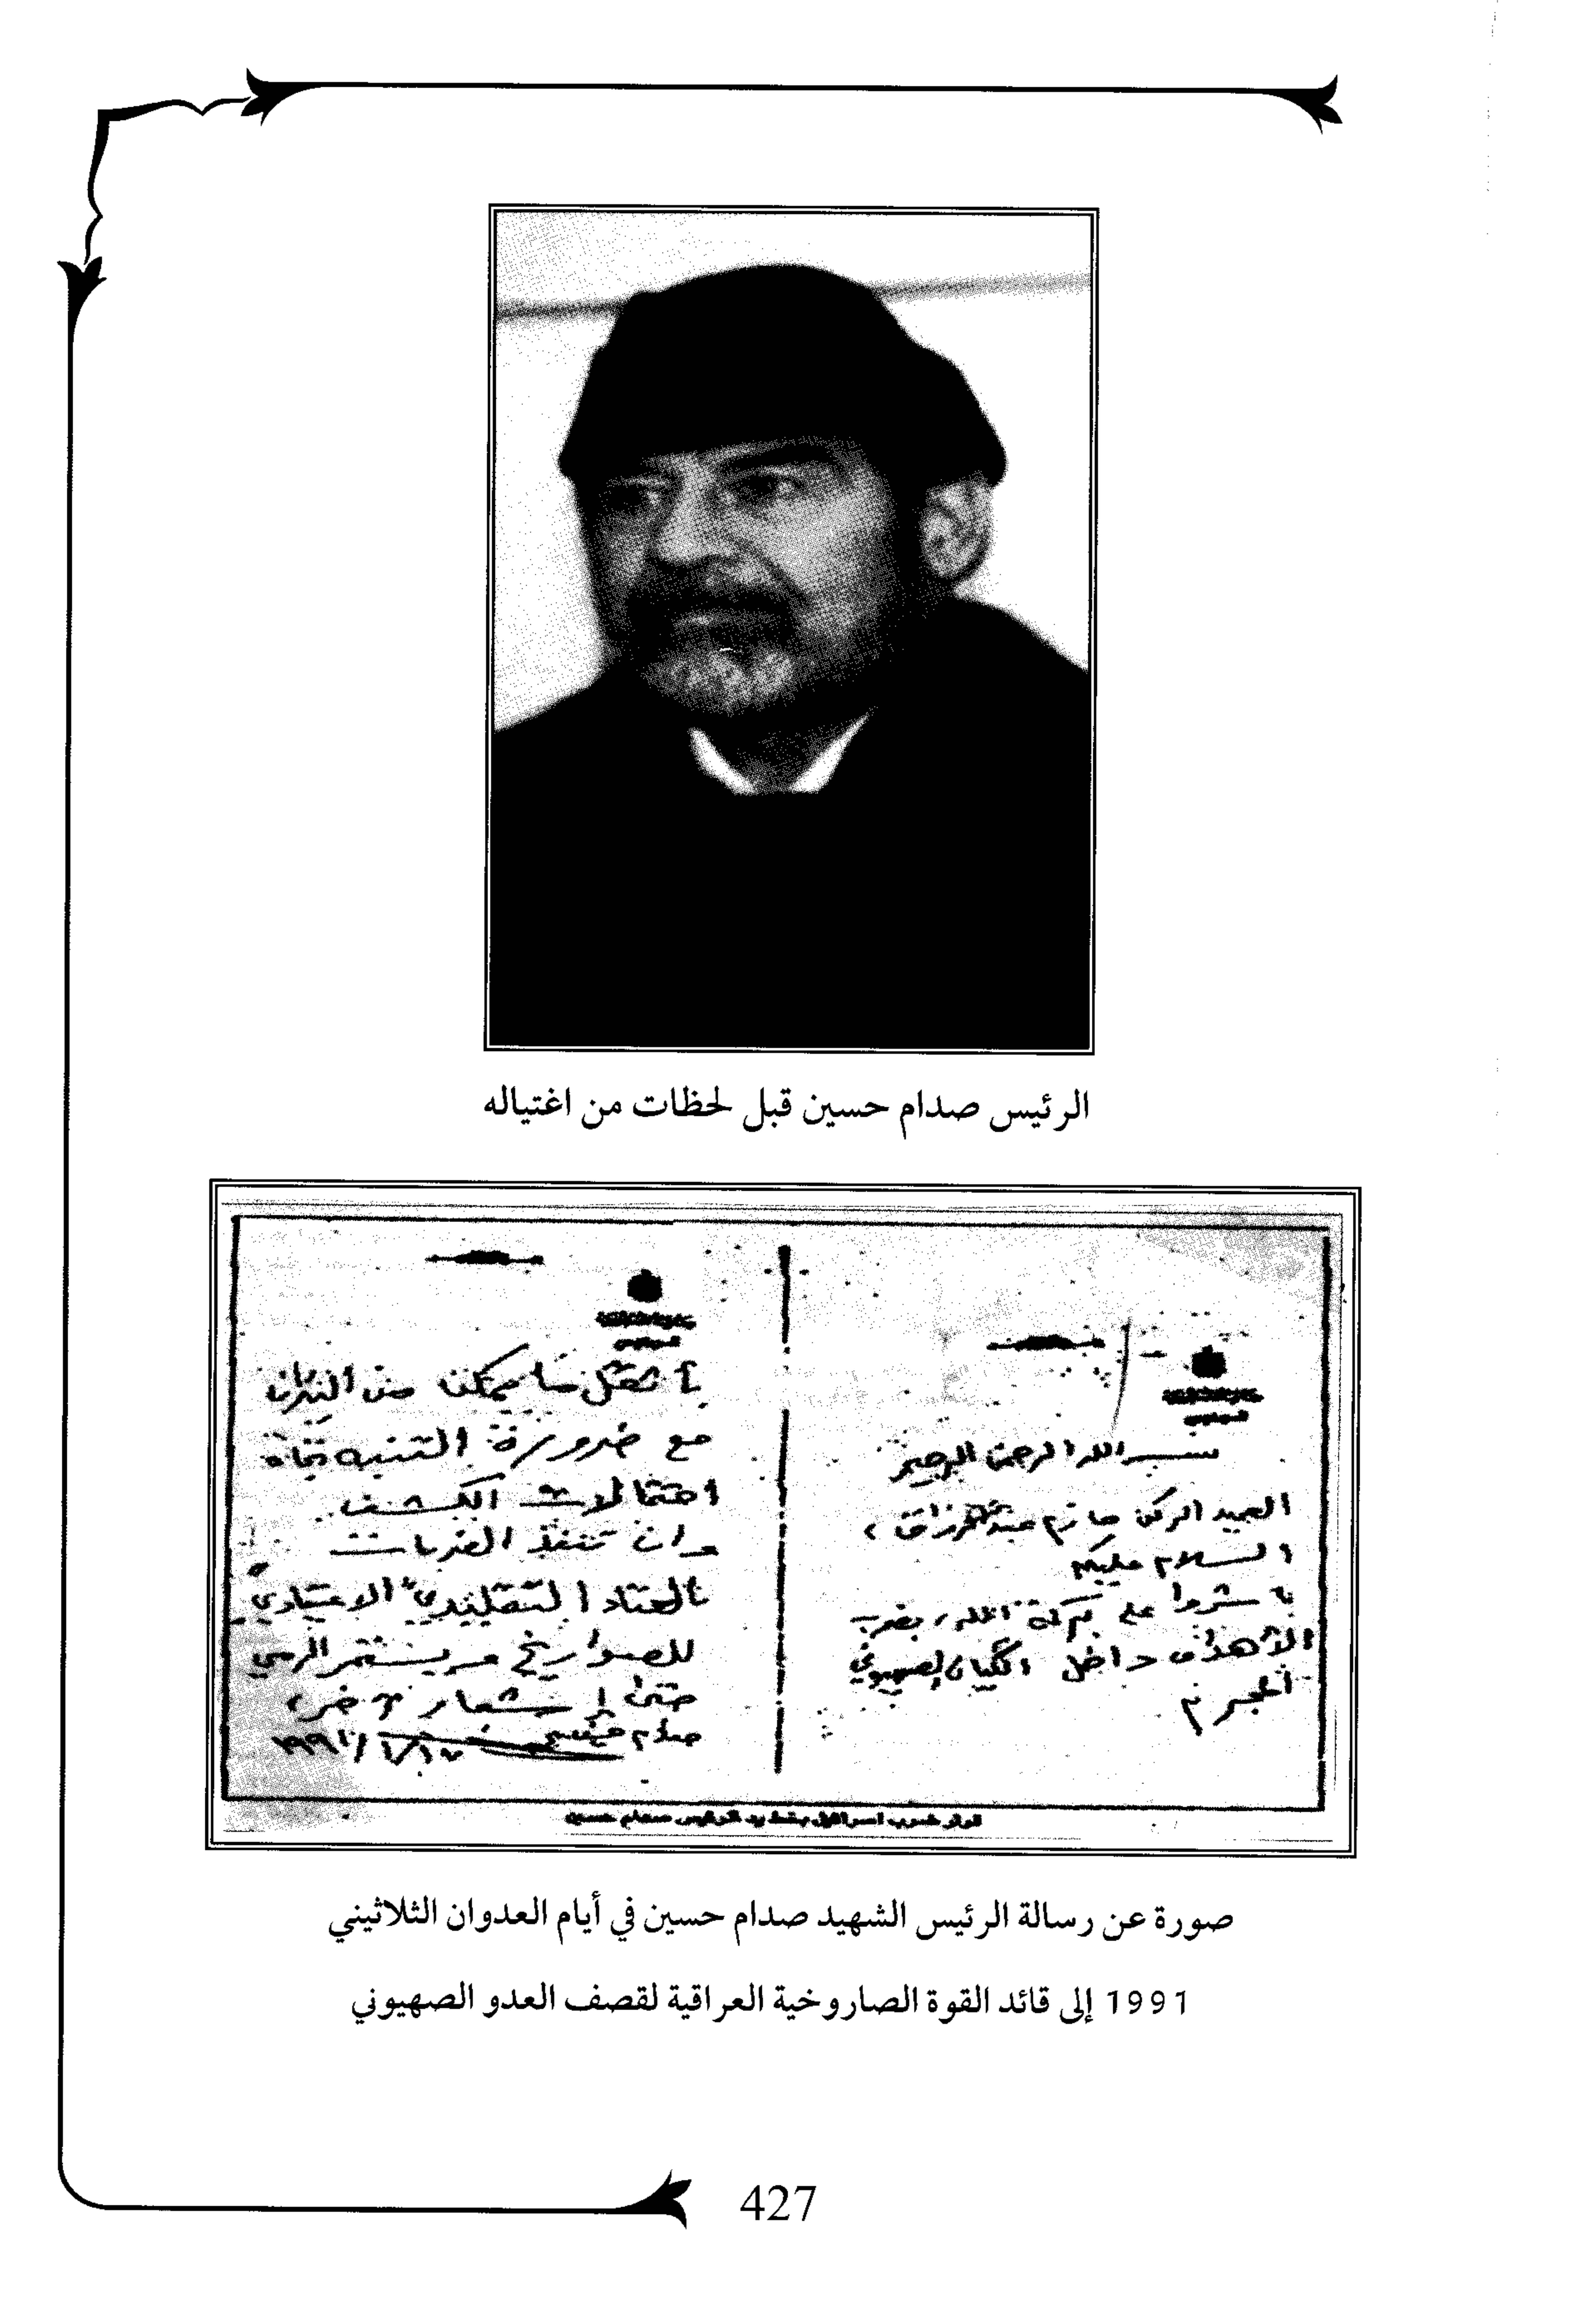 الرئيس صدام حسين قبل لحظات من اغتياله
بسم الله الرحمن الرحيم
العميد الركن حازم عبد الرزاق ،
السلام عليكم
باشروا على بركة الله ، بضرب
الأهداف داخل الكيان الصهيوني
المجرم
بأثقل ما يمكن من النيران
مع ضرورة التنبه تجاه
احتمالات الكشف .
وان تنفذ الضربات
بالعتاد التقليدي " الاعتيادي "
للصواريخ ويستمر الرمي
حتى إشعار آخر ،
صدام حسين
١٩٩١/١/١٧
قرار ضرب اسرائيل بخط يد الرئيس صدام حسين
صورة عن رسالة الرئيس الشهيد صدام حسين في أيام العدوان الثلاثيني
1991 إلى قائد القوة الصاروخية العراقية لقصف العدو الصهيوني
427